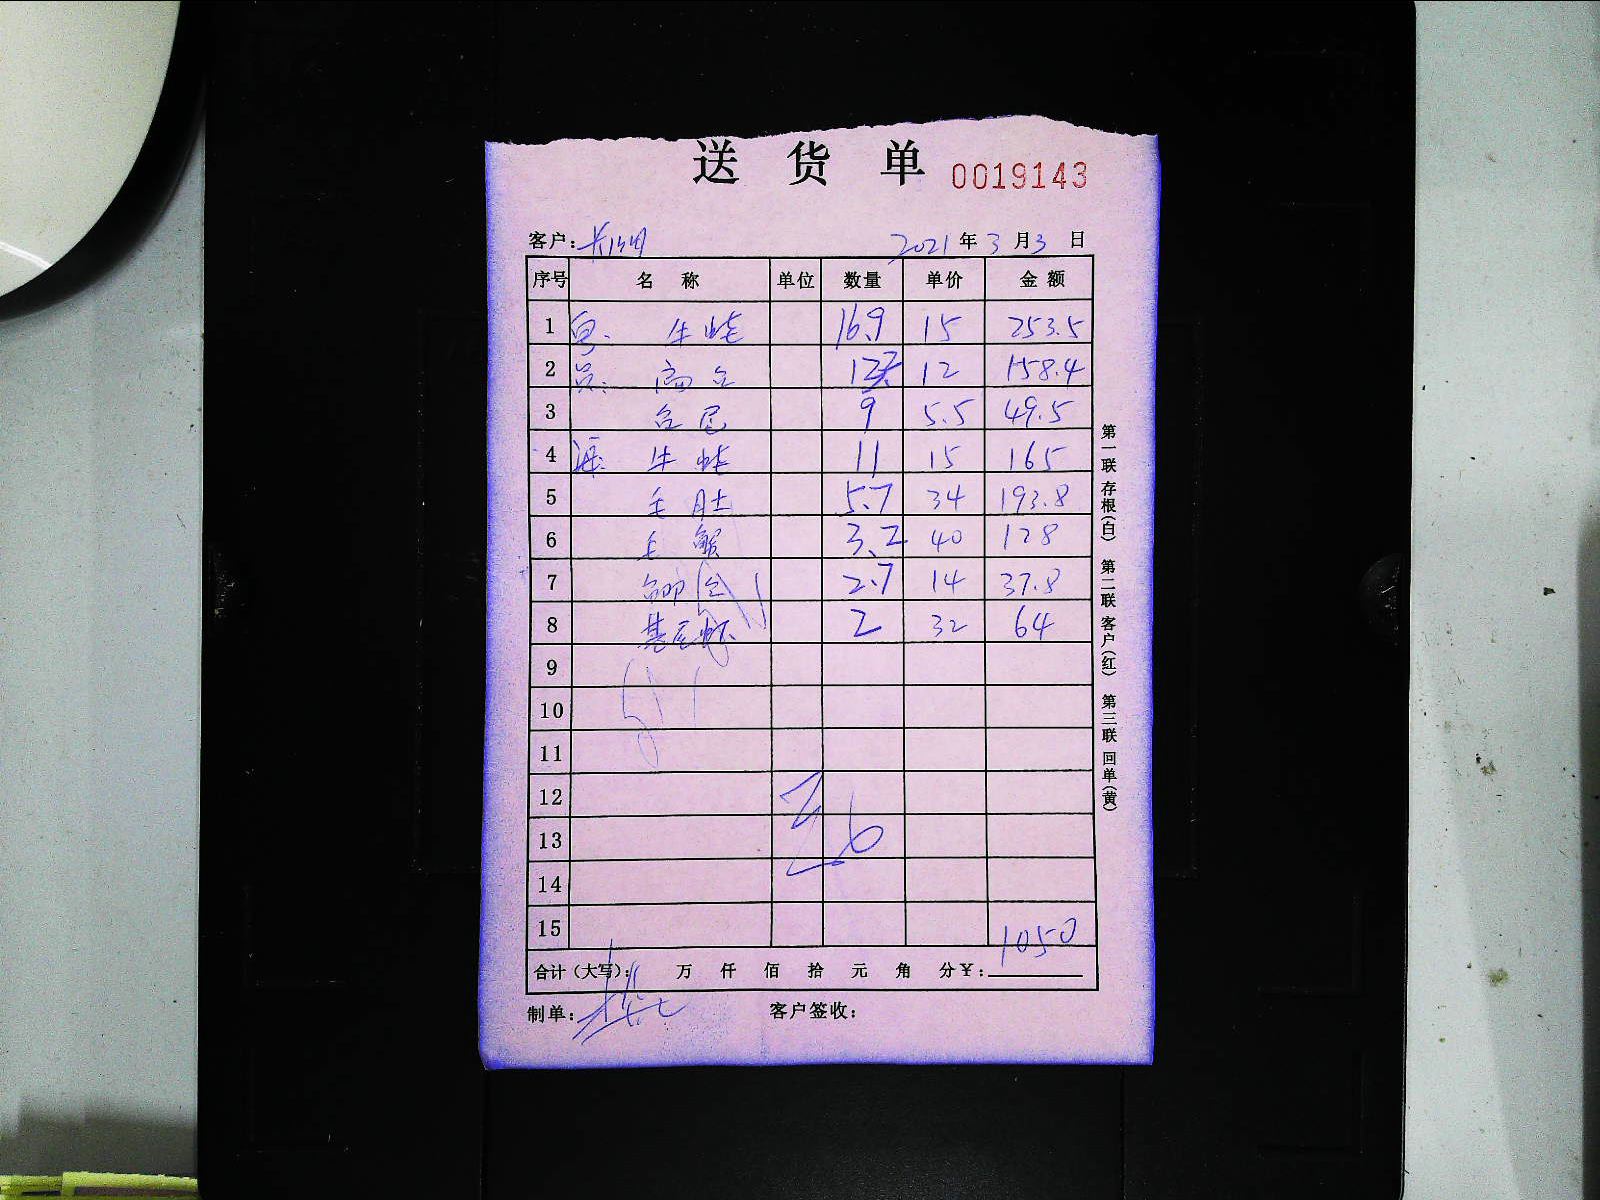 送 货 单 0019143
客户： 2021 年 3 月 3 日
序号 名 称 单位 数量 单价 金 额
1 牛蛙 16.9 15 253.5
2 12 158.4
3 9 5.5 49.5
4 牛蛙 11 15 165
5 毛肚 5.7 34 193.8
6 3.2 40 128
7 2.7 14 37.8
8 基尾虾 2 32 64
9
10
11
12
13
14
15 1050
合计（大写）： 万 仟 佰 拾 元 角 分 ¥：
制单： 客户签收：
第一联 存根（白） 第二联 客户（红） 第三联 回单（黄）